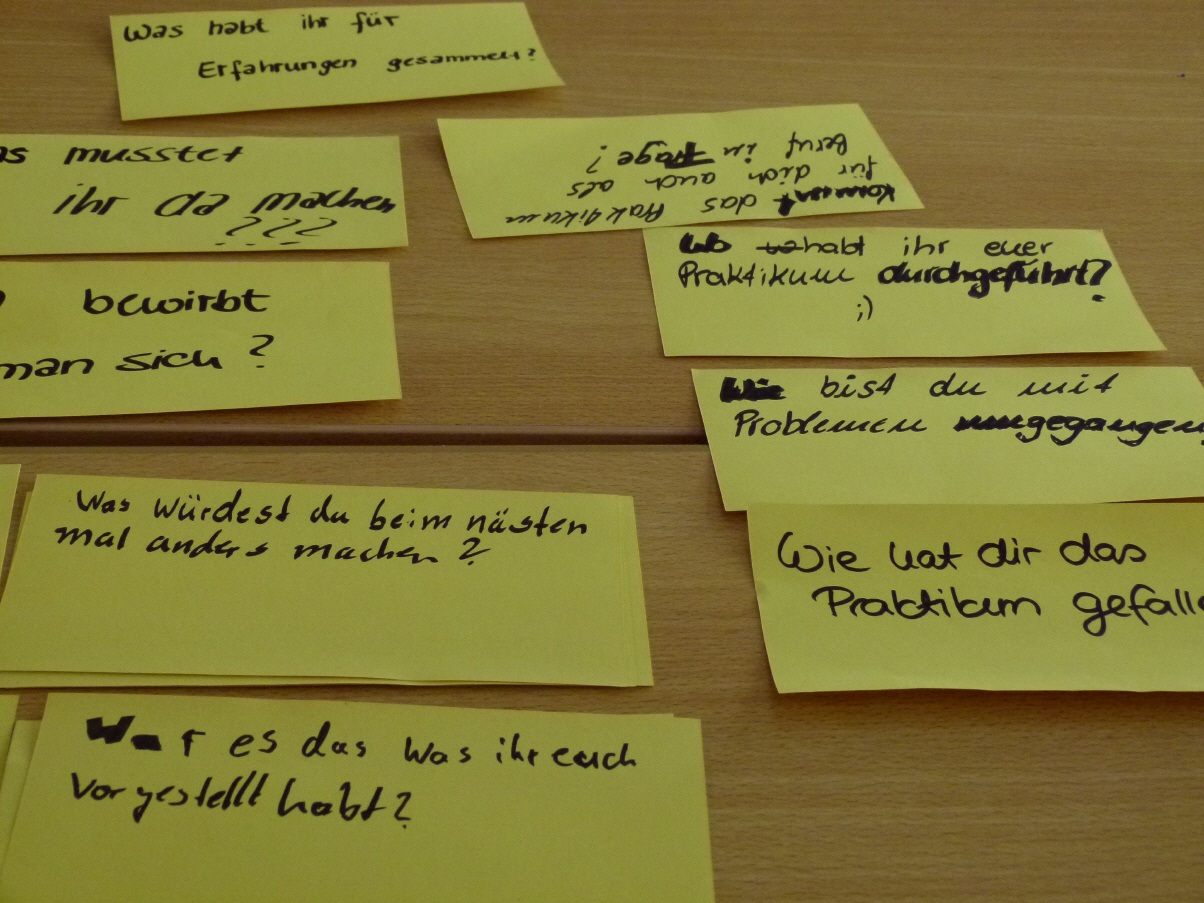 Was habt ihr für
Erfahrungen gesammelt?
as musstet
ihr da machen
????
kommt das Praktikum
für dich auch als
Beruf in Frage?
Wo habt ihr euer
Praktikum durchgeführt?
;)
bewirbt
man sich?
Wie bist du mit
Problemen umgegangen
Was würdest du beim nästen
mal anders machen?
Wie hat dir das
Praktikum gefalle
War es das was ihr euch
vorgestellt habt?